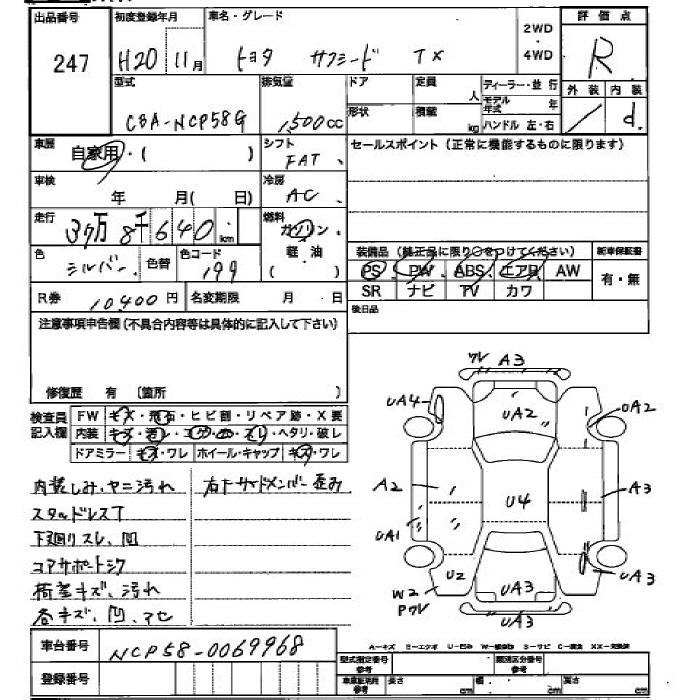 出品番号 初度登録年月 車名・グレード 2WD・4WD 評価点
247 H20 11月 トヨタ サクシード TX R
型式 排気量 ドア 定員 人 ディーラー・並行 外装 内装
CBA-NCP58G 1,500cc 形状 積載 kg モデル年式 年 ハンドル 左・右 d.
車歴 自家用・( ) シフト FAT セールスポイント (正常に機能するものに限ります)
車検 年 月( 日) 冷房 AC
走行 3万8千640km 燃料 ガソリン・
色 シルバー 色替 色コード 199 軽油 ( ) 装備品 (純正品に限り○をつけてください) 新車保証書
PS PW ABS エアB AW 有・無
R券 10,400円 名変期限 月 日 SR ナビ TV カワ
注意事項申告欄(不具合内容等は具体的に記入して下さい) 後日品
修復歴 有 〔箇所 〕
検査員記入欄 FW キズ・飛石・ヒビ割・リペア跡・X要
内装 キズ・汚レ・コゲ・穴・スレ・ヘタリ・破レ
ドアミラー キズ・ワレ ホイール・キャップ キズ・ワレ
内装しみ、ヤニ汚れ 右下サイドメンバー歪み
スタッドレスT
下廻りスレ、凹
コアサポートシワ
荷差キズ、汚れ
各キズ、凹、アセ
ワレ A3
UA4 UA2 UA2
A2 U4 A3
UA1
U2 UA3 UA3
W2
Pワレ UA3
車台番号 NCP58-0069968
登録番号
A-キズ E-エクボ U-凹み W-補修跡 S-サビ C-腐食 XX-交換済
型式指定番号参考 類別区分番号参考
車庫証明用参考 長さ cm 幅 cm 高さ cm